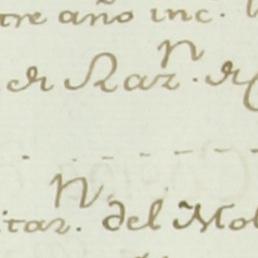 tre año inc.
de Razⁿ. de
itarⁿ. del Mol